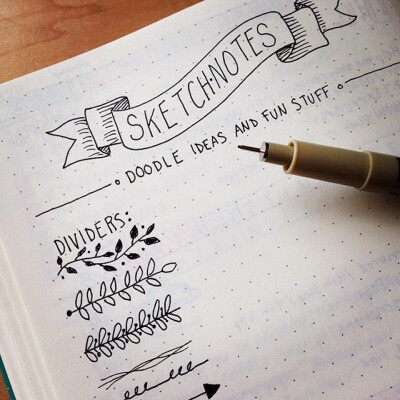 SKETCHNOTES
DOODLE IDEAS AND FUN STUFF
DIVIDERS: